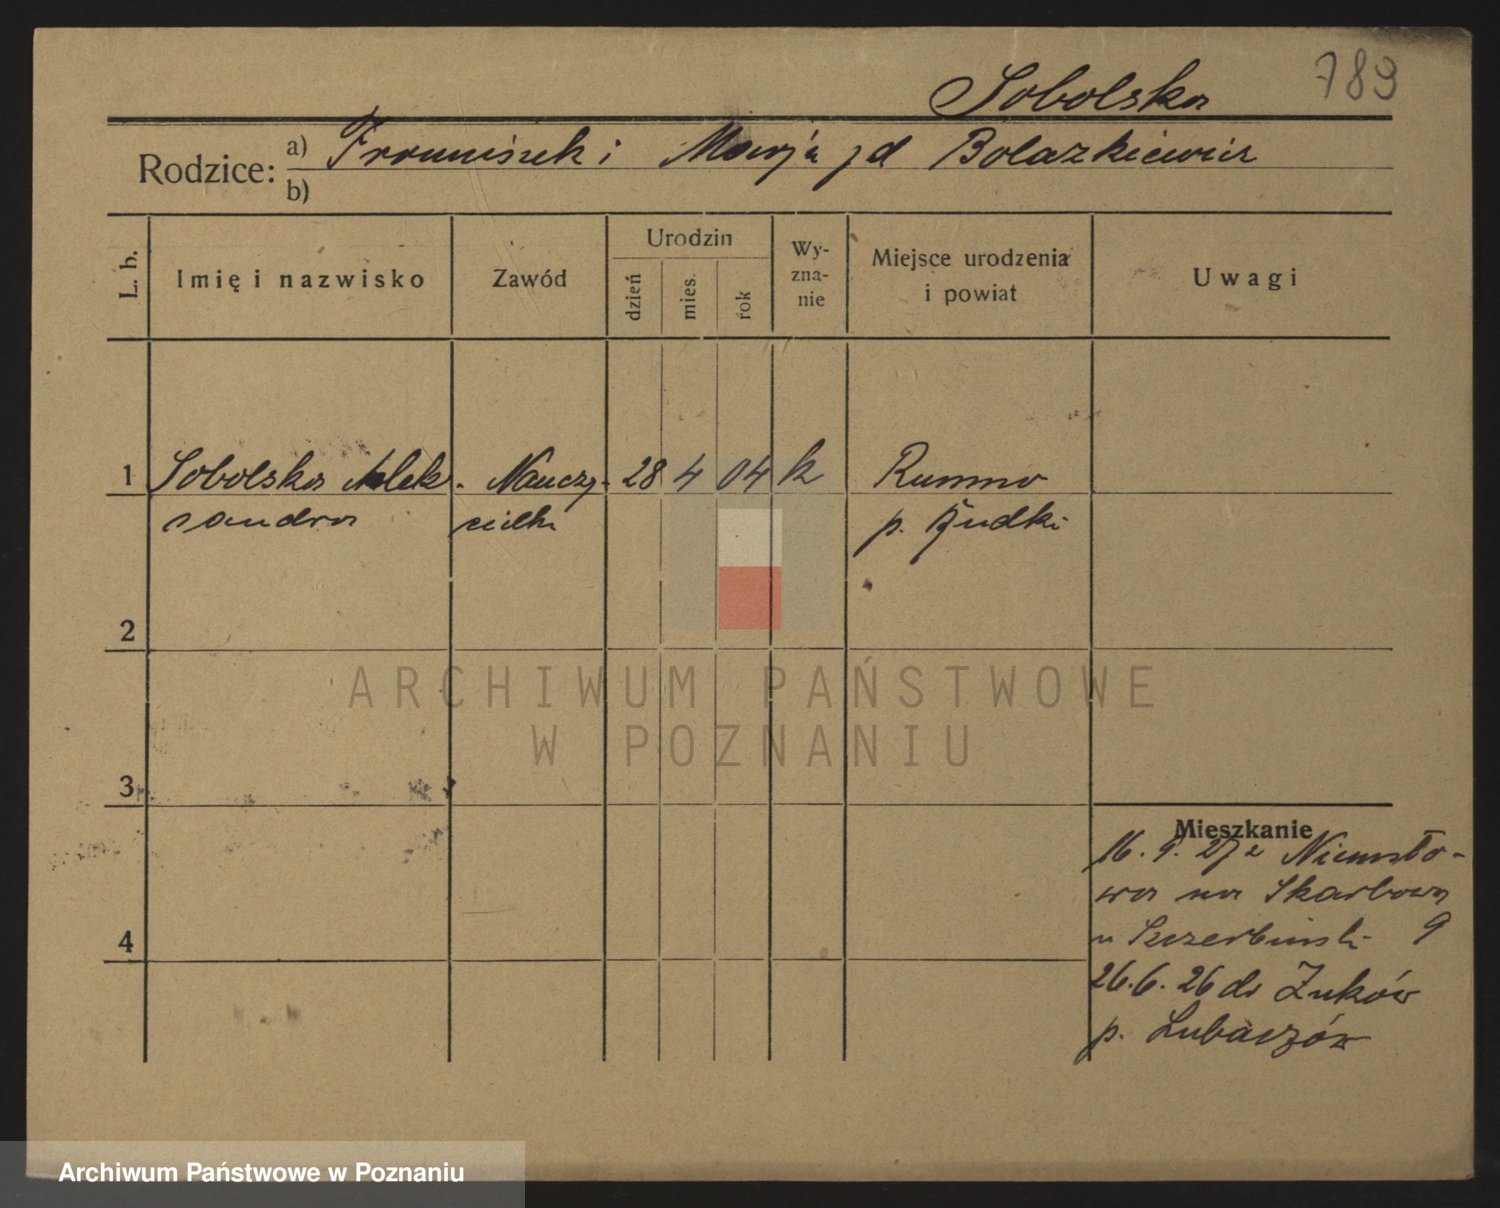 789
Sobolska
Rodzice: a) Franciszek i Marja zd Bolazkiewicz
b)
L. b.
Imię i nazwisko
Zawód
Urodzin
dzień
mies.
rok
Wy-
zna-
nie
Miejsce urodzenia
i powiat
Uwagi
1 Sobolska Alek- Nauczy- 28 4 04 k Rumno
sandra cielka p. Rudki
2
3
4
Mieszkanie
16. 9. 27 z Niemsto-
wa na Skarbowa
u Szczerbinski 9
26.6. 26 do Żuków
p. Lubaczów
ARCHIWUM PAŃSTWOWE
W POZNANIU
Archiwum Państwowe w Poznaniu